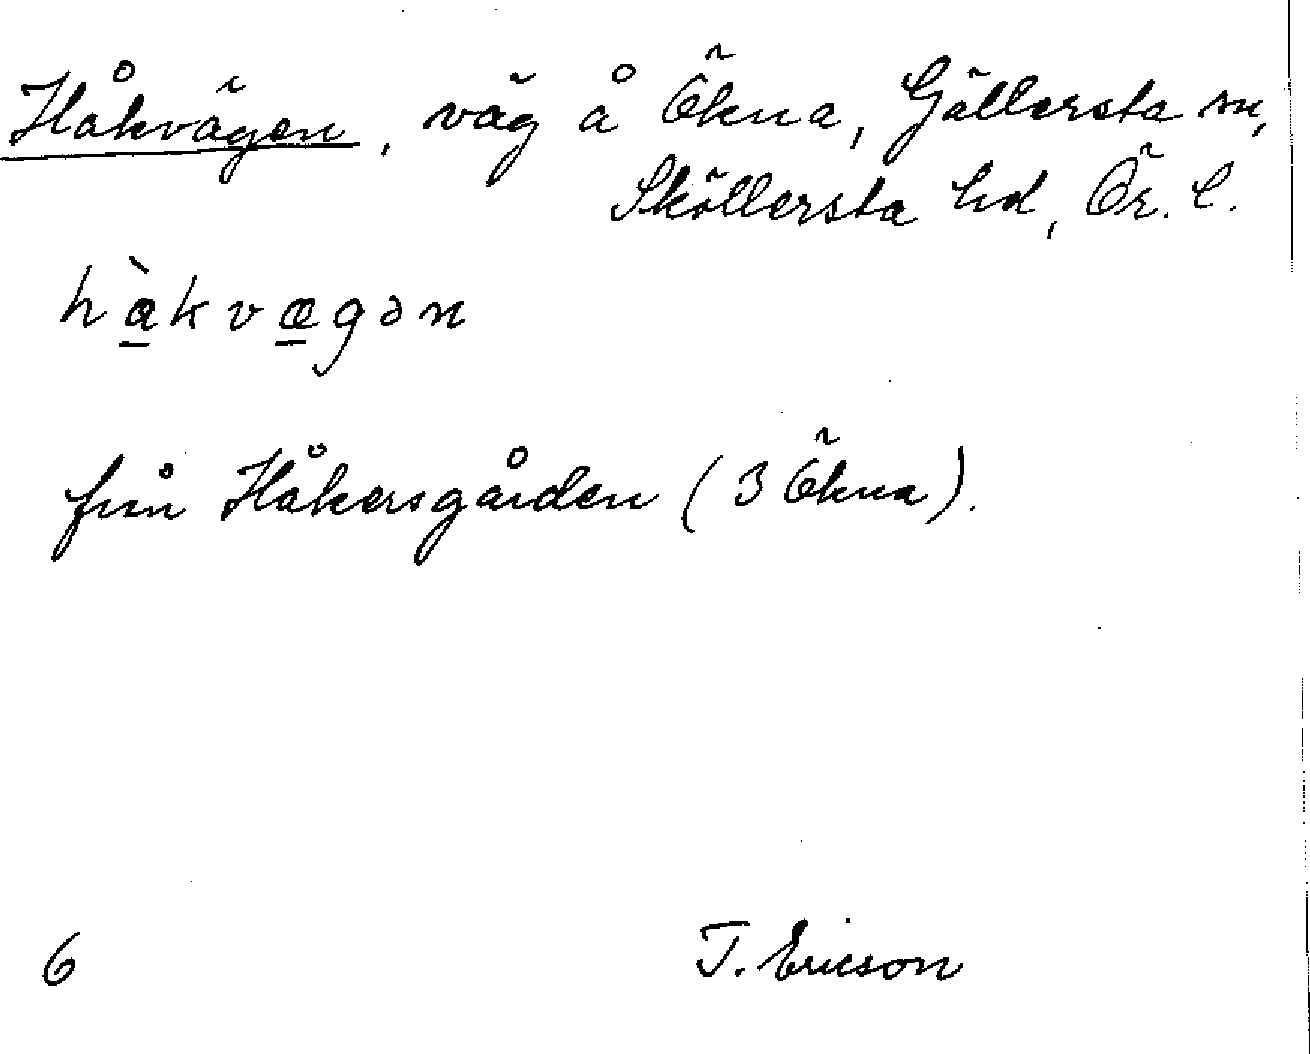 Håkvägen, väg å Ökna, Gällersta sn,
Sköllersta hd, Ör. l.
hàkvægən
från Håkersgården (3 Ökna).
6 T. Ericson